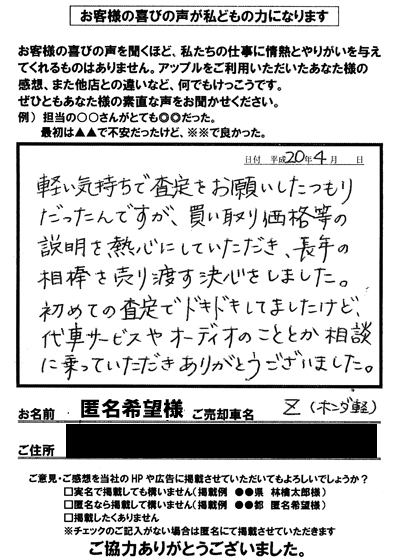 お客様の喜びの声が私どもの力になります
お客様の喜びの声を聞くほど、私たちの仕事に情熱とやりがいを与え
てくれるものはありません。アップルをご利用いただいたあなた様の
感想、また他店との違いなど、何でもけっこうです。
ぜひともあなた様の素直な声をお聞かせください。
例）担当の○○さんがとても◎◎だった。
最初は▲▲で不安だったけど、※※で良かった。
日付 平成20年4月 日
軽い気持ちで査定をお願いしたつもり
だったんですが、買い取り価格等の
説明を熱心にしていただき、長年の
相棒を売り渡す決心をしました。
初めての査定でドキドキしてましたけど、
代車サービスやオーディオのこととか相談
に乗っていただきありがとうございました。
お名前 匿名希望様 ご売却車名 Z（ホンダ軽）
ご住所
ご意見・ご感想を当社のHPや広告に掲載させていただいてもよろしいでしょうか？
□実名で掲載しても構いません（掲載例 ●●県 林檎太郎様）
□匿名なら掲載して構いません（掲載例 ●●都 匿名希望様）
□掲載したくありません
※チェックのご記入がない場合は匿名にて掲載させていただきます
ご協力ありがとうございました。